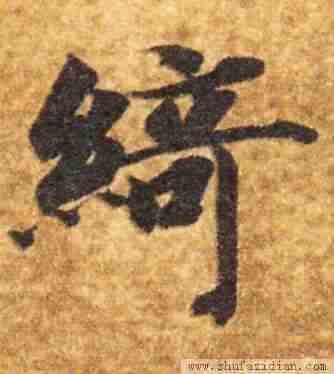 綺
www.shufazidian.com